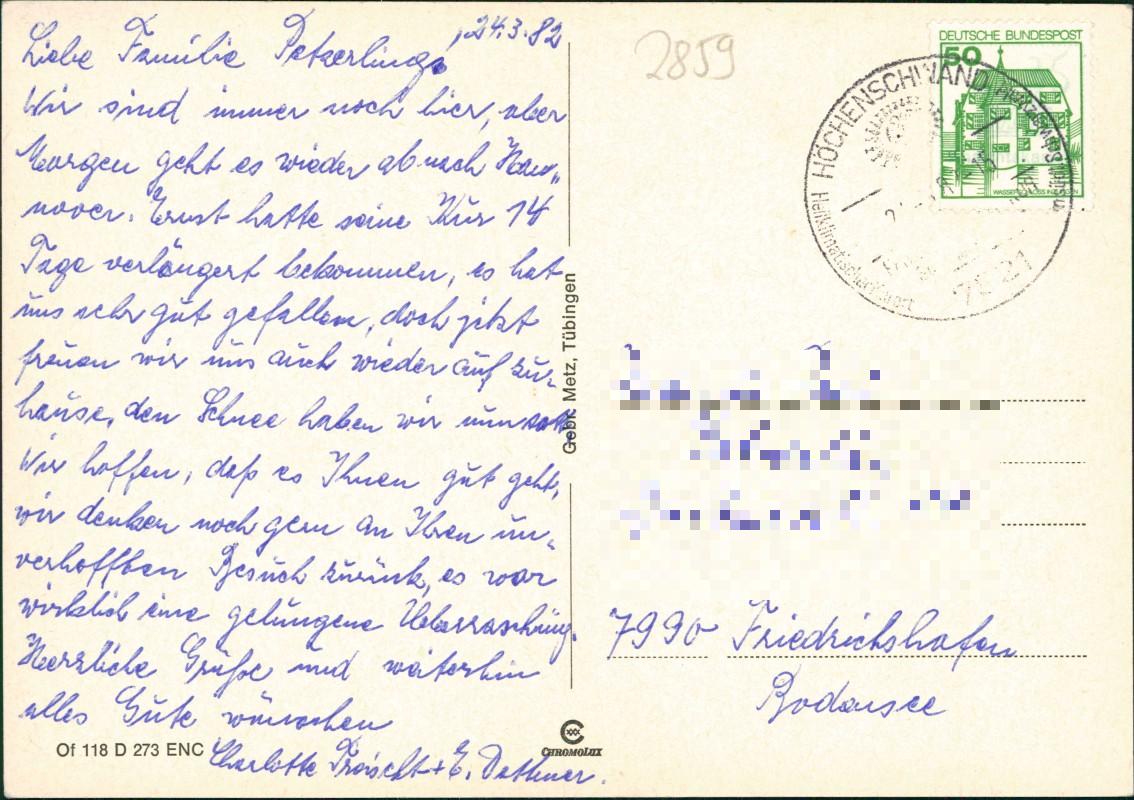 24.3.82
Liebe Familie
Wir sind immer noch hier, aber
Morgen geht es wieder ab nach Han„
nover. Ernst hatte seine Kur 14
Tage verlängert bekommen, es hat
uns sehr gut gefallen, doch jetzt
freuen wir uns auch wieder auf zu„
hause, den Schnee haben wir nun satt.
Wir hoffen, daß es Ihnen gut geht,
wir denken noch gern an Ihren un„
verhofften Besuch zurück, es war
wirklich eine gelungene Ueberraschung.
Herzliche Grüße und weiterhin
alles Gute wünschen
Charlotte + E. Dettmer.
Of 118 D 273 ENC
Gebr. Metz, Tübingen
CHROMOLUX
2859
DEUTSCHE BUNDESPOST
50
HÖCHENSCHWAND
Heilklimatischer Kurort
7990 Friedrichshafen
Bodensee